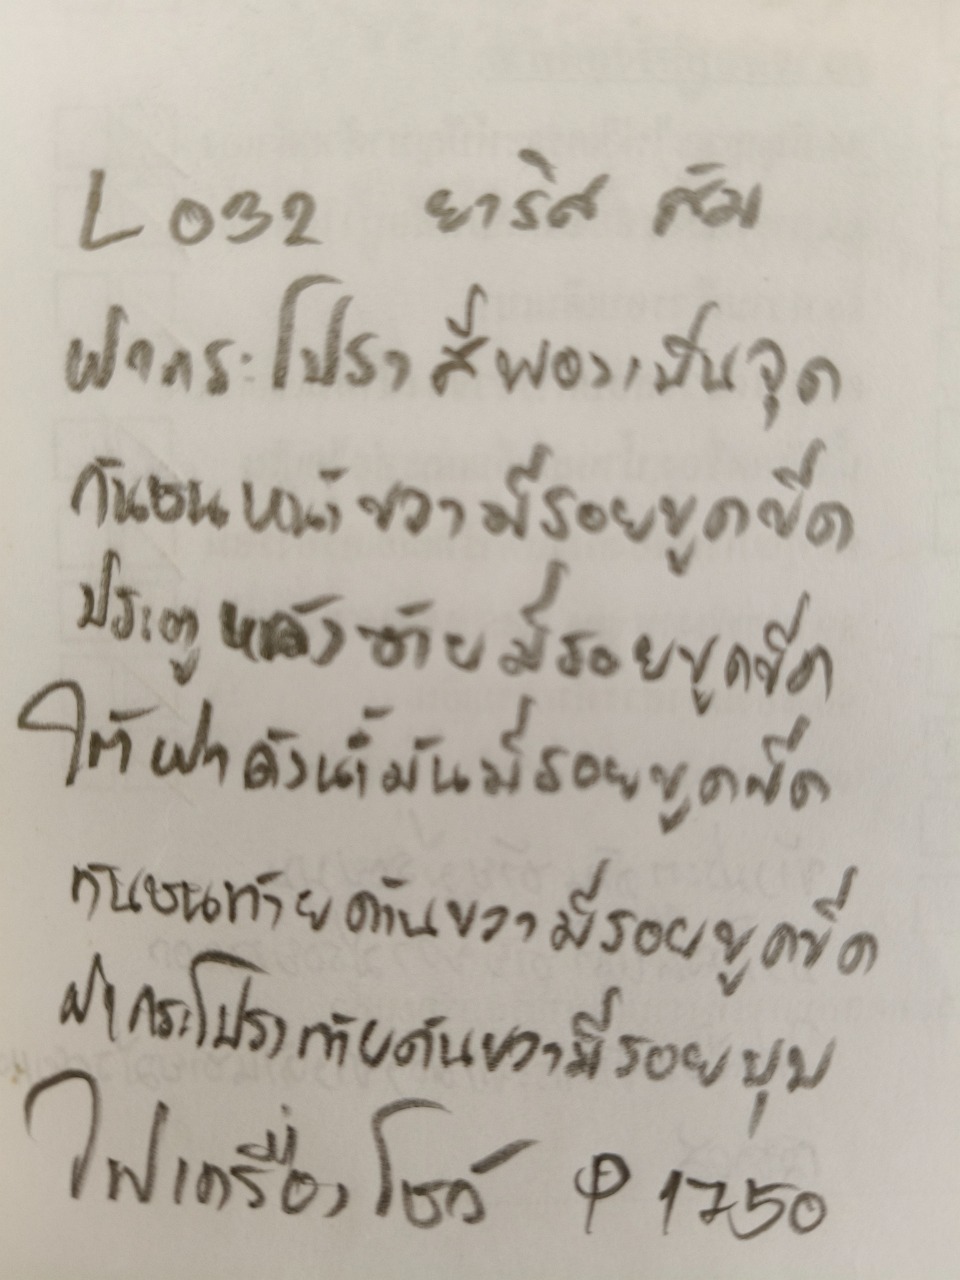 L 032 ยาริส ส้ม
ฝากระโปรง สีพองเป็นจุด
กันชนหน้าขวามีรอยขูดขีด
ประตูหลังซ้ายมีรอยขูดขีด
ใต้ฝาถังน้ำมันมีรอยขูดขีด
กันชนท้ายด้านขวามีรอยขูดขีด
ฝากระโปรงท้ายด้านขวามีรอยบุบ
ไฟเครื่องโชว์ P 1750